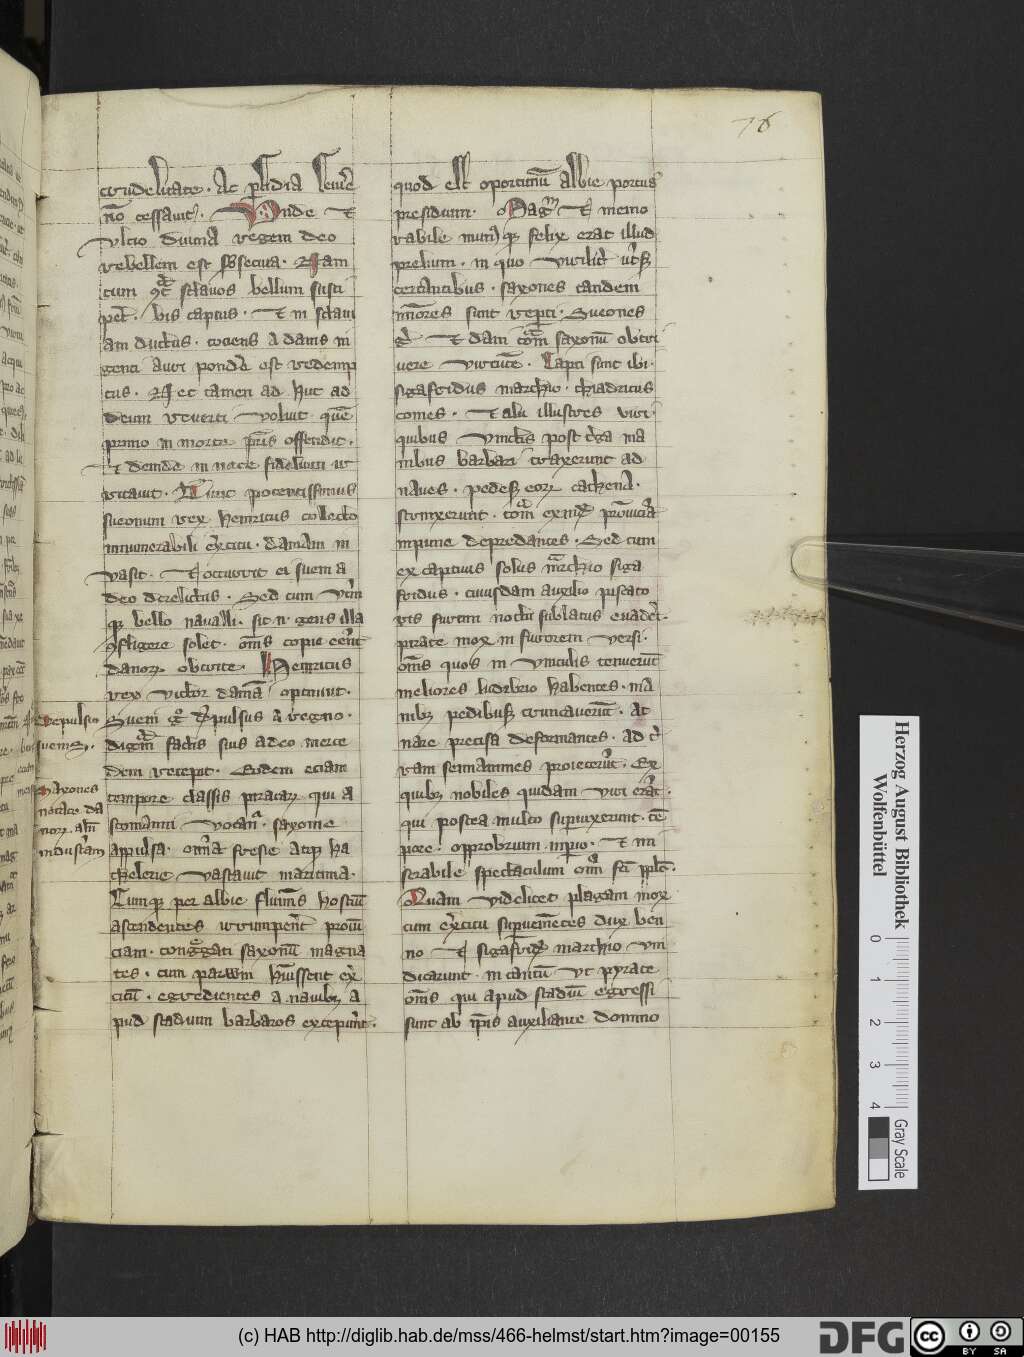 76
crudelitate . Ac p̄fidia seuire
no cessauit . Vnde et
vltio diuina regem deo
rebellem est subsecuta . Nam
cum ꝯt͛ sclauos bellum susci
peret . bis captus . Et in sclaui
am ductus . totiens a danis in
genti auri pondere est redemp
tus . Nec tamen ad huc ad
deum reuerti voluit quē
primo in morte pr̄is offendit .
Et deinde in nece fidelium ir
ritauit . Tunc potentissimus
sueonum rex hemricus collecto
innumerabili exercitu . daniam in
uasit . Et occurrit ei suein a
deo derelictus . Sed cum vtrīqꝫ
bello nauali . sic n̄ gens illa
ꝯfligere solet . om̄s copie
danorꝫ obtrite . Hemricus
rex victor daniā optinuit .
Sueni gͦ depulsus a regno .
dignā factis suis a deo merce
dem recepit . Eodem eciam
tempore classis piratarꝫ qui a
vocantur . saxonie
appulsa . omnia fresie atqꝫ ha
thelerie vastauit maritima .
Cumqꝫ per albie fluminis hostiū
ascendentes irrumperent prouin
ciam . congͤgati saxonū magna
tes . cum paruum huissent exer
citū . egredientes a nauibꝫ a
pud stadium barbaros exceperunt .
Depulsio
sueni
Saxones
da
norꝫ
quod est oportunū albie portus
presidium . Magnū et memo
rabile
prelium . in quo viriliter vtrisqꝫ
certantibus . saxones tandem
minores sunt reperti . Sueones
gͦ . Et dani totam saxonū obtri
uere virtutē . Capti sunt ibi .
sigafridus marchio . thiadricus
comes . Et alii illustres viri .
quibus vinctis post terga ma
nibus barbari traxerunt ad
naues . pedesqꝫ eorꝫ cathena .
strinxerunt . totam exinde prouinciā
inpune depredantes . Sed cum
ex captiuis solus marchio siga
fridus . cuiusdam auxilio piscato
ris furtim nocte sublatus euaderet .
pirate mox in furorem versi .
om̄s quos in vinculis tenuerunt
meliores ludibrio habentes . ma
nibꝫ pedibusqꝫ truncauerunt . Ac
nare precisa deformantes . ad ter
ram semianimes proiecerunt . Ex
quibꝫ nobiles quidam viri erant .
qui postea multo superuixerunt . tem
pore . opprobrium inperio . Et mi
serabile spectaculum omi sui pplō .
Quam videlicet plagam mox
cum exercitu superuenientes dux ben
no . Et sigafridꝫ marchio vin
dicarunt . in tantū vt pyrate
om̄s qui apud stadiū egressi
sunt ab ipsis auxiliante domino
Herzog August Bibliothek
Wolfenbüttel
0 1 2 3 4
Gray Scale
(c) HAB http://diglib.hab.de/mss/466-helmst/start.htm?image=00155
DFG
cc BY SA